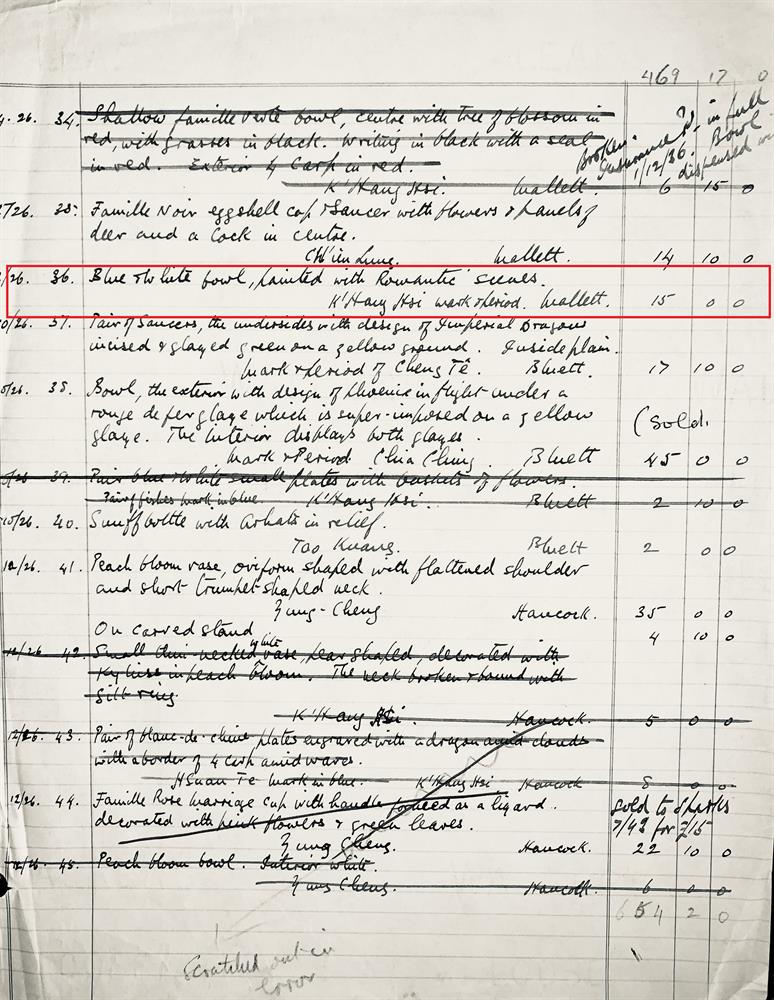 469 17 0
4.26. 34. Shallow famille verte bowl, centre with tree of blossom in
red, with grasses in black. Writing in black with a seal
in red. Exterior 4 Carp in red.
Broken.
Insurance Pd in full
1/12/36. Bowl
dispensed
K'Hang Hsi. Mallett. 6 15 0
/26. 35. Famille Noir eggshell cup & Saucer with flowers & panels of
deer and a Cock in centre.
Ch'ien Lung. Mallett. 14 10 0
/26. 36. Blue & White bowl, painted with 'Romantic' scenes.
K'Hang Hsi mark & period. Mallett. 15 0 0
0/26. 37. Pair of Saucers, the undersides with design of Imperial Dragons
incised & glazed green on a yellow ground. Inside plain.
Mark & period of Cheng Tê. Bluett. 17 10 0
/26. 38. Bowl, the exterior with design of phoenix in flight under a
rouge de fer glaze which is super-imposed on a yellow
glaze. The interior displays both glazes. (Sold.
Mark & Period Chia Ching. Bluett 45 0 0
39. Pair blue & white small plates with baskets of flowers.
Pair of fishes mark in blue. K'Hang Hsi. Bluett 2 10 0
10/26. 40. Snuff bottle with Arhats in relief.
Tao Kuang. Bluett 2 0 0
12/26. 41. Peach bloom vase, oviform shaped with flattened shoulder
and short trumpet shaped neck.
Yung-Cheng Hancock. 35 0 0
On carved stand 4 10 0
12/26. 42. Small thin-necked white vase, pear shaped, decorated with
Kylins in peach bloom. The neck broken & bound with
silk ring.
K'Hang Hsi. Hancock. 5 0 0
12/26. 43. Pair of blanc-de-chine plates engraved with a dragon amid clouds
with a border of 4 Carp amid waves.
Hsuan Te mark in blue. K'Hang Hsi Hancock 8 0 0
12/26. 44. Famille Rose Marriage Cup with handle formed as a lizard.
decorated with pink flowers & green leaves.
Sold to Sparks
7/43 for £15
Yung Cheng. Hancock. 22 10 0
12/26. 45. Peach bloom bowl. Interior white.
Yung Cheng. Hancock 6 0 0
654 2 0
Scratched out in
error